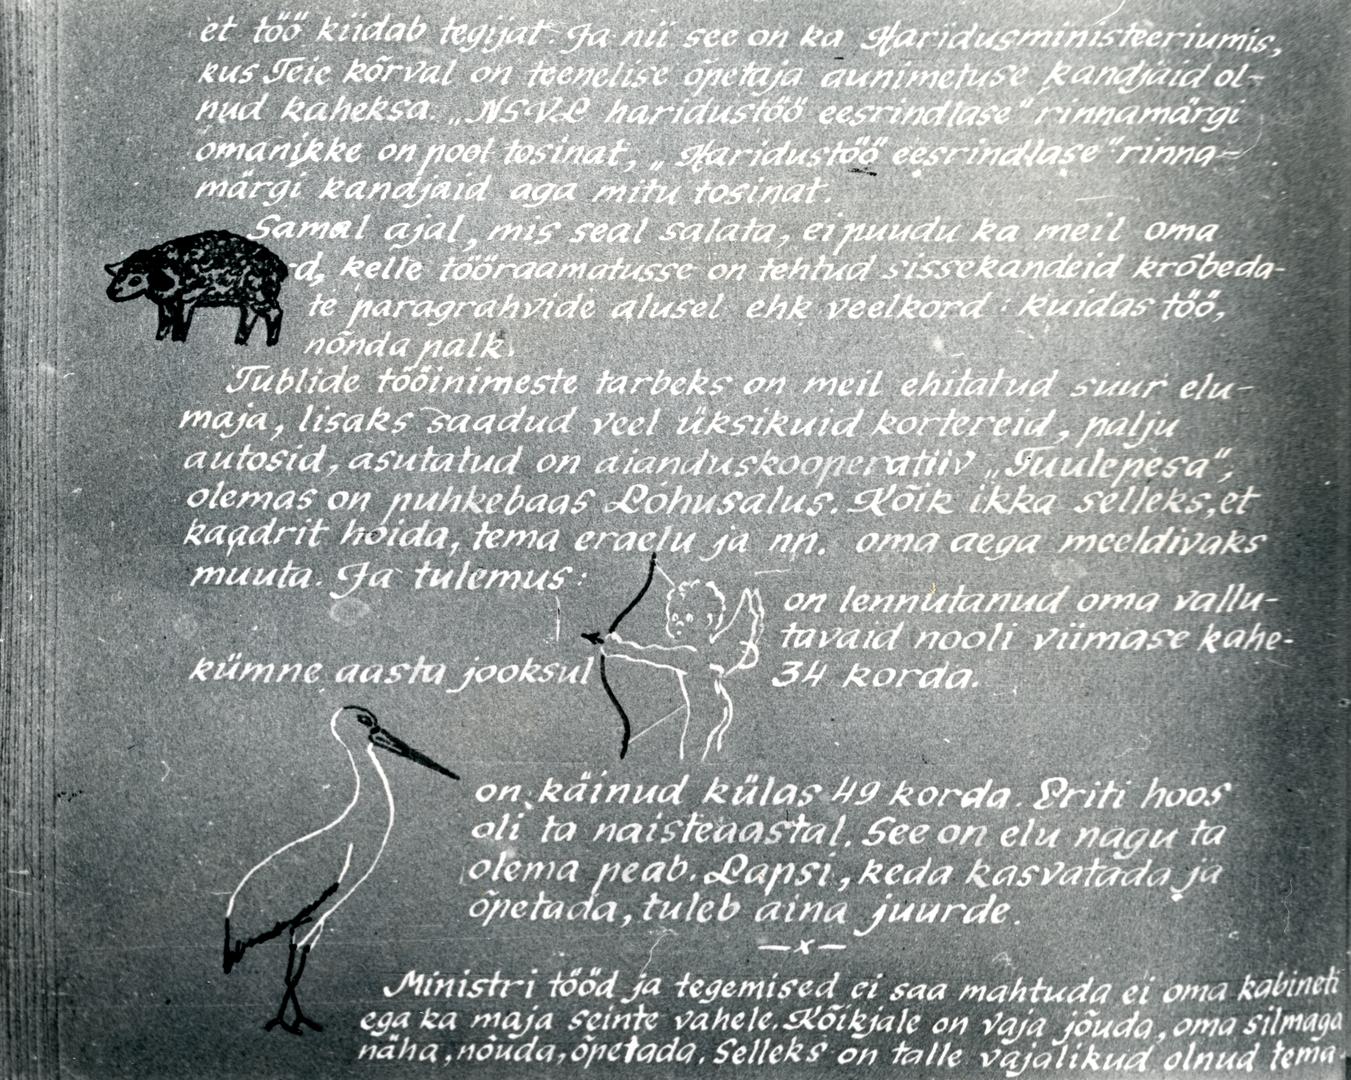 et töö kiidab tegijat. Ja nii see on ka Haridusministeeriumis,
kus Teie kõrval on teenelise õpetaja aunimetuse kandjaid ol-
nud kaheksa. „NSVL haridustöö eesrindlase" rinnamärgi
omanikke on pool tosinat, „Haridustöö eesrindlase" rinna-
märgi kandjaid aga mitu tosinat.
Samal ajal, mis seal salata, ei puudu ka meil oma
rd, kelle tööraamatusse on tehtud sissekandeid krõbeda-
te paragrahvide alusel ehk veelkord: kuidas töö,
nõnda palk.
Tublide tööinimeste tarbeks on meil ehitatud suur elu-
maja, lisaks saadud veel üksikuid kortereid, palju
autosid, asutatud on aianduskooperatiiv „Tuulepesa",
olemas on puhkebaas Lohusalus. Kõik ikka selleks, et
kaadrit hoida, tema eraelu ja nn. oma aega meeldivaks
muuta. Ja tulemus:
on lennutanud oma vallu-
tavaid nooli viimase kahe-
kümne aasta jooksul 34 korda.
on käinud külas 49 korda. Eriti hoos
oli ta naisteaastal. See on elu nagu ta
olema peab. Lapsi, keda kasvatada ja
õpetada, tuleb aina juurde.
—x—
Ministri tööd ja tegemised ei saa mahtuda ei oma kabineti
ega ka maja seinte vahele. Kõikjale on vaja jõuda, oma silmaga
näha, nõuda, õpetada. Selleks on talle vajalikud olnud tema